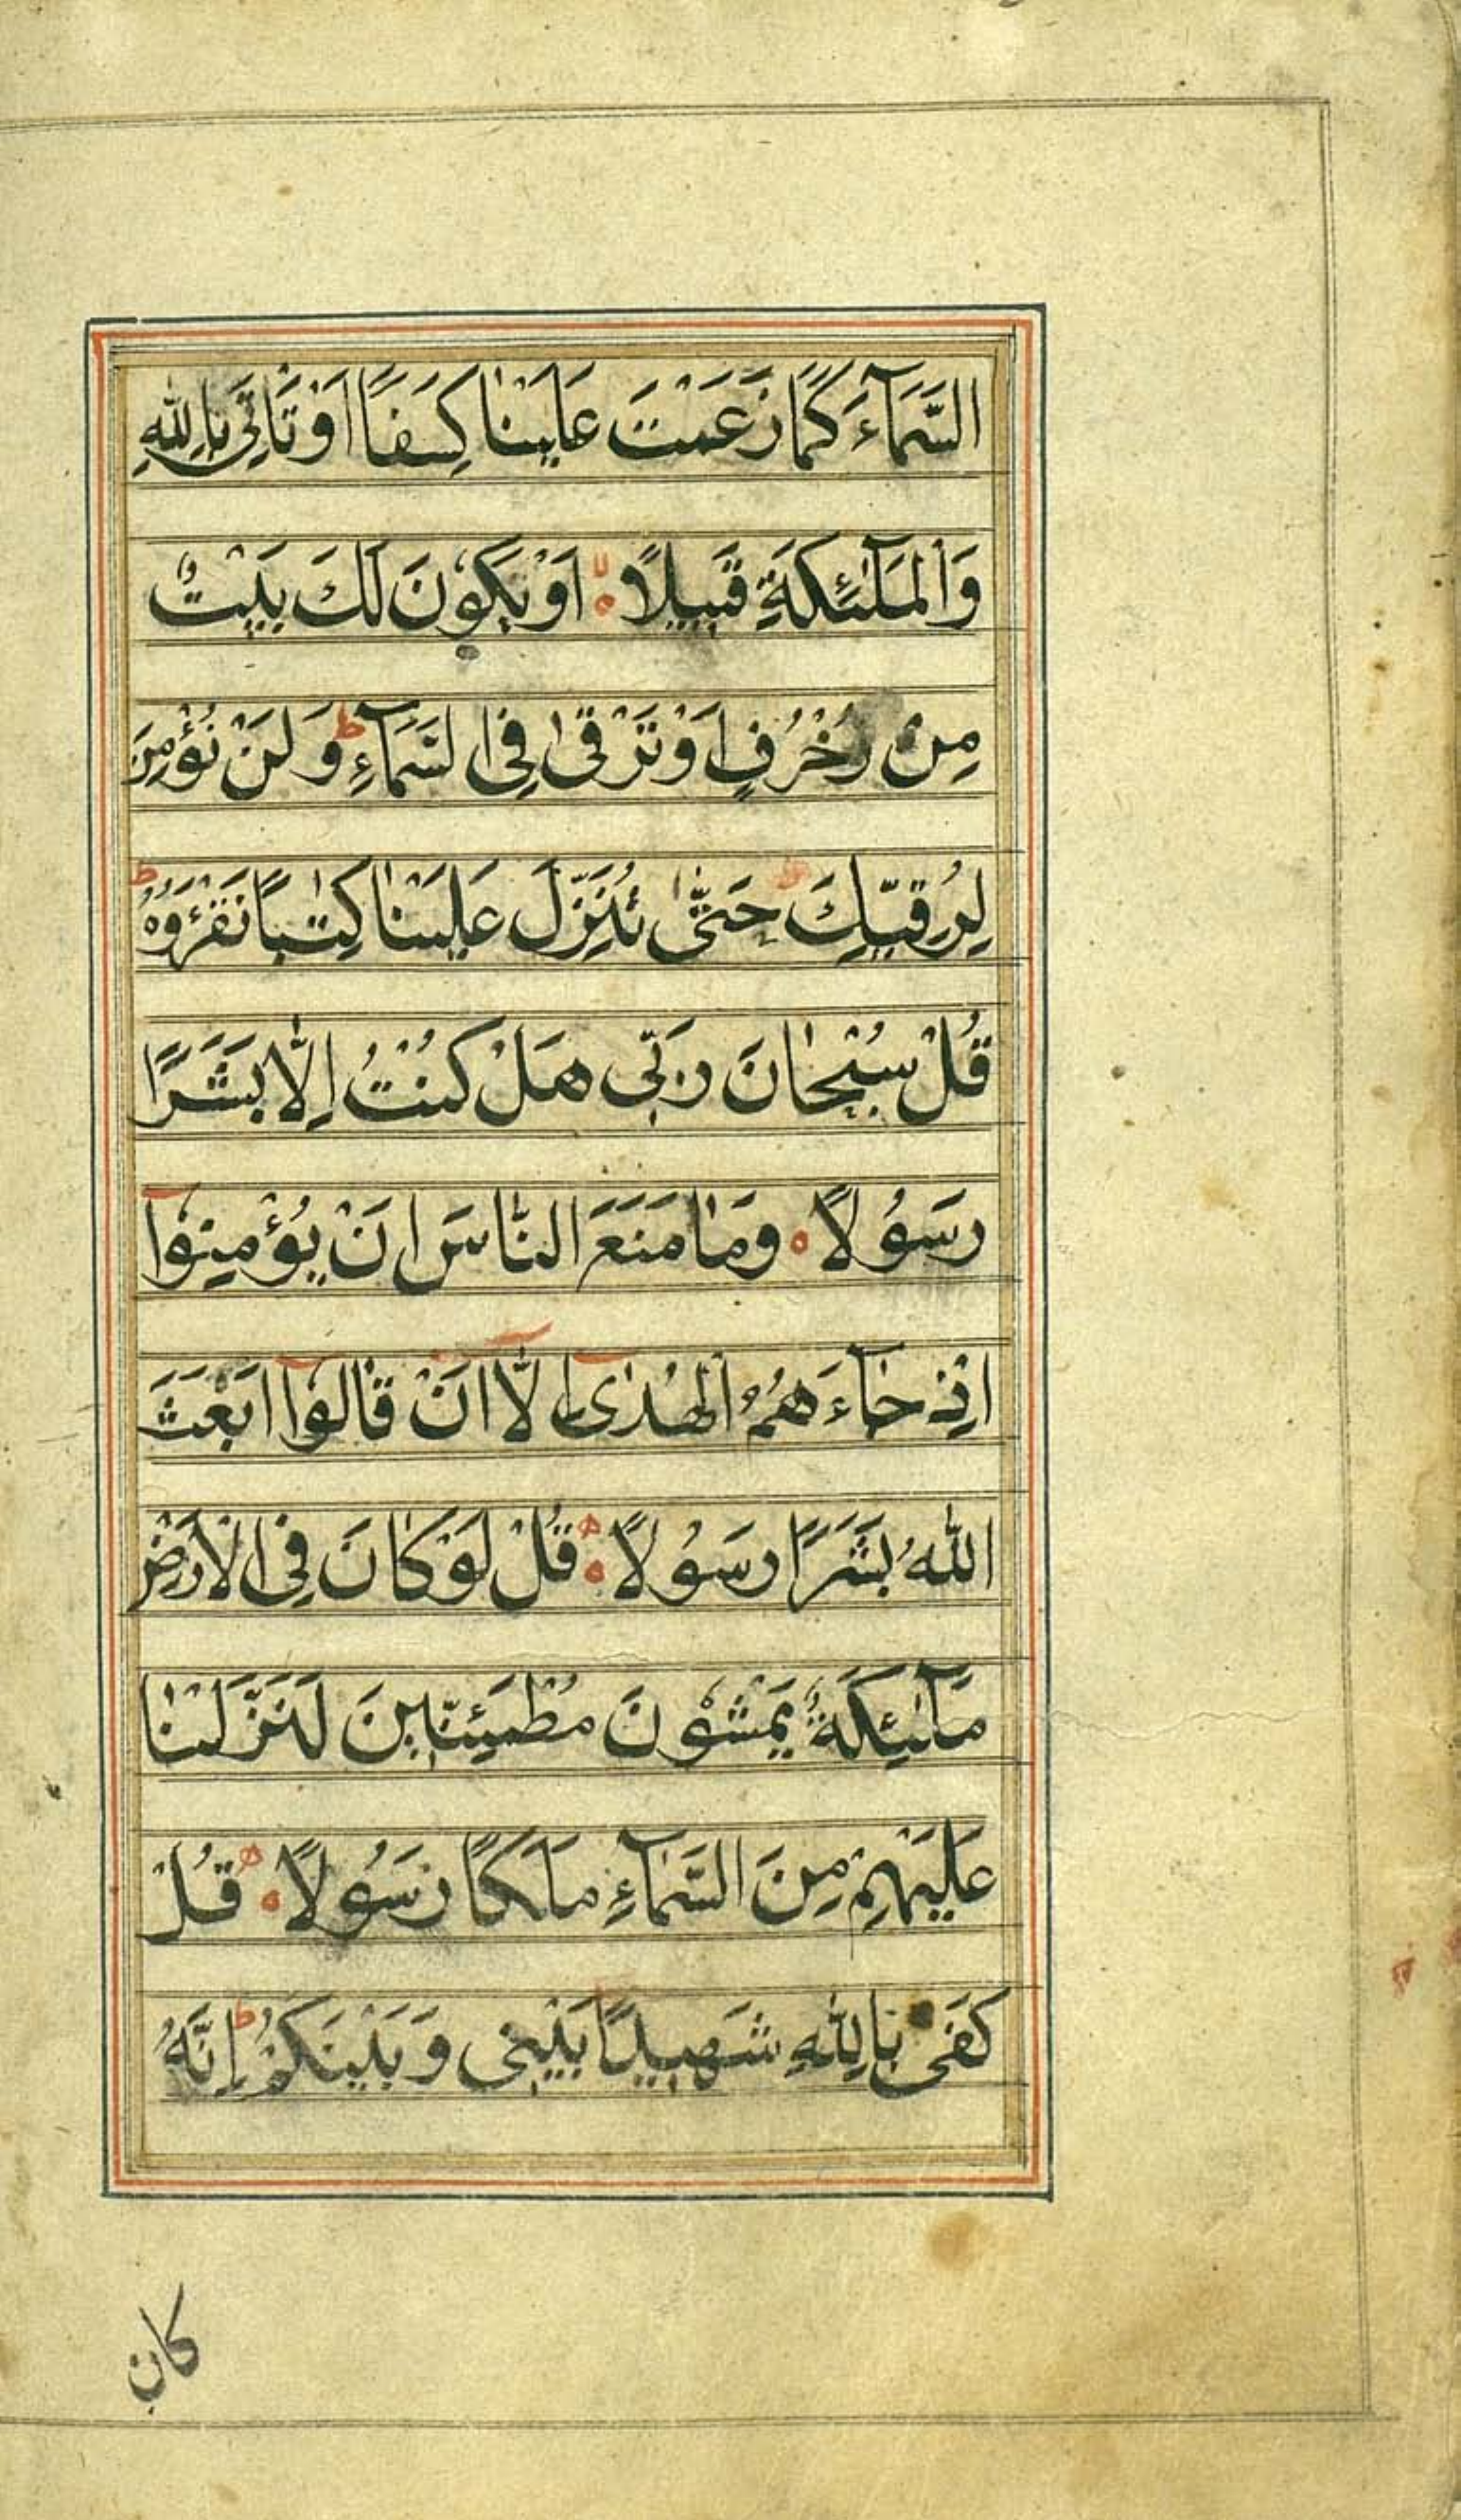 السَّمَآءَ كَمَا زَعَمْتَ عَلَيْنَا كِسَفًا اَوْ تَاْتِىَ بِاللّٰهِ
وَالْمَلٰٓئِكَةِ قَبِيلًا ۙ اَوْ يَكُوْنَ لَكَ بَيْتٌ
مِنْ زُخْرُفٍ اَوْ تَرْقٰى فِى السَّمَآءِ ط وَ لَنْ نُؤْمِنَ
لِرُقِيِّكَ حَتّٰى تُنَزِّلَ عَلَيْنَا كِتٰبًا نَقْرَؤُهُ ط
قُلْ سُبْحَانَ رَبِّى هَلْ كُنْتُ اِلَّا بَشَرًا
رَسُوْلًا ه وَمَا مَنَعَ النَّاسَ اَنْ يُؤْمِنُوْٓا
اِذْ جَآءَهُمُ الْهُدٰٓى اِلَّآ اَنْ قَالُوْٓا اَبَعَثَ
اللّٰهُ بَشَرًا رَسُوْلًا ه قُلْ لَوْ كَانَ فِى الْاَرْضِ
مَلٰٓئِكَةٌ يَمْشُوْنَ مُطْمَئِنِّيْنَ لَنَزَّلْنَا
عَلَيْهِمْ مِنَ السَّمَآءِ مَلَكًا رَسُوْلًا ه قُلْ
كَفٰى بِاللّٰهِ شَهِيدًا بَيْنِى وَ بَيْنَكُمْ ط اِنَّهُ
كان